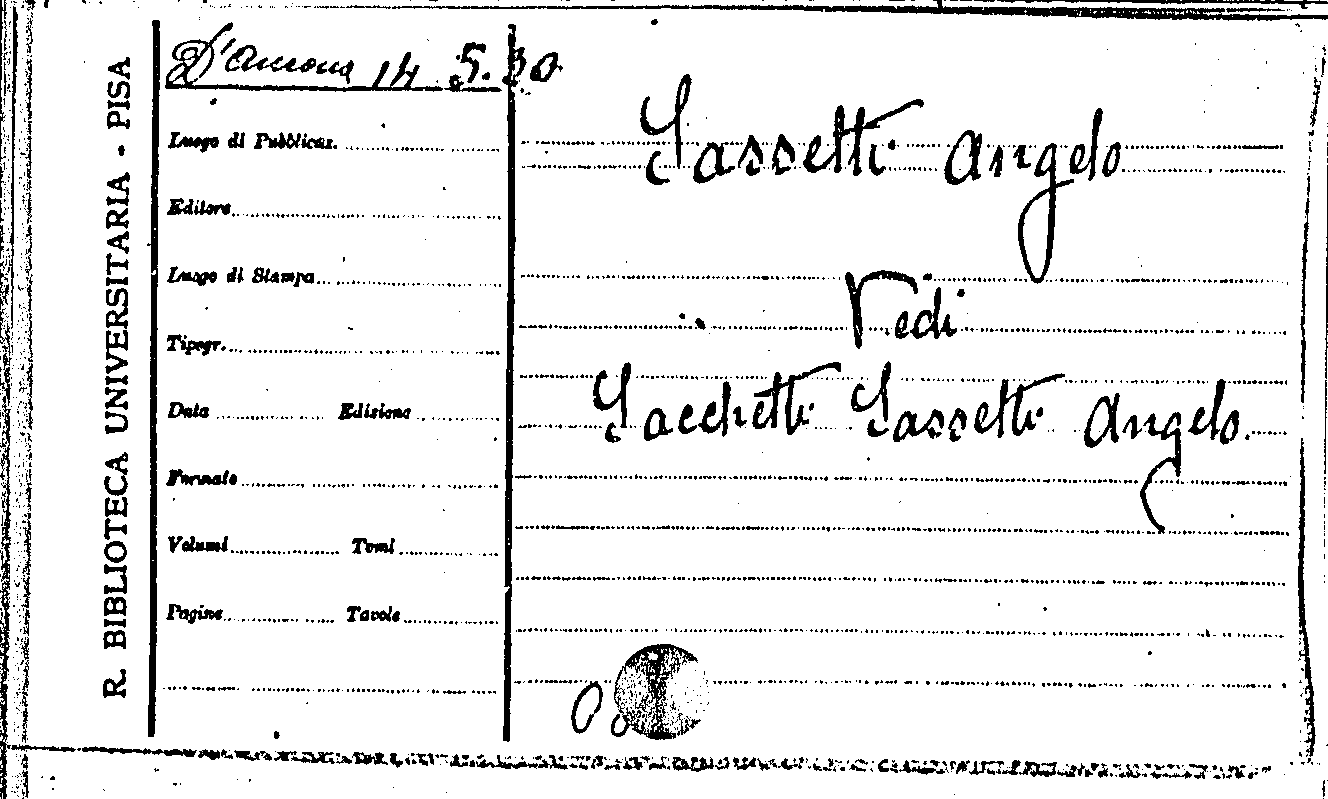 R. BIBLIOTECA UNIVERSITARIA - PISA
D'Ancona 14 5. 30
Luogo di Pubblicaz.
Editore
Luogo di Stampa
Tipogr.
Data Edizione
Formato
Volumi Tomi
Pagine Tavole
Sassetti Angelo
Vedi
Sacchetti Sassetti Angelo.